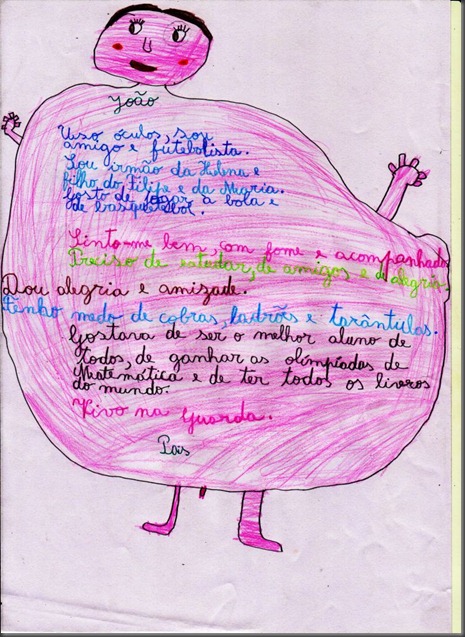 João
Uso óculos, sou
amigo e futebolista.
Sou irmão da Helena e
filho do Filipe e da Maria.
Gosto de jogar à bola e
de basquetebol.
Sinto-me bem, com fome e acompanhado.
Preciso de estudar, de amigos e de alegria.
Dou alegria e amizade.
Tenho medo de cobras, ladrões e tarântulas.
Gostava de ser o melhor aluno de
todos, de ganhar as olimpíadas de
Matemática e de ter todos os livros
do mundo.
Vivo na Guarda.
Pais